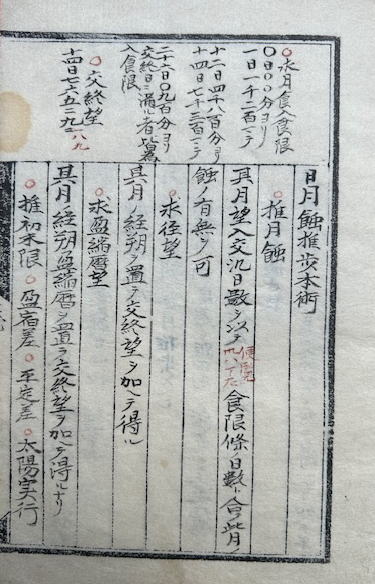 ○求月食入食限
○日○○分ヨリ
一日一千二百一テ
十二日四千八百分ヨリ
十四日七千三百一テ
二十六日○九百分ヨリ
交終日ニ満ル者ハ皆
入食限
○交終望
十四日七六五三九二八九
日月蝕推歩本術
○推月蝕
其月望入交汎日数ヲ以テ食限條ノ日数ト合背ノ
蝕ノ有無ヲ可
○求径望
其月ノ経朔ヲ置テ交終望ヲ加ヘテ得ル
○求盈縮暦望
其月ノ経朔盈縮暦ヲ置テ交終望ヲ加ヘテ得ルナリ
○推初末限○盈宿差○平定差○太陽実行